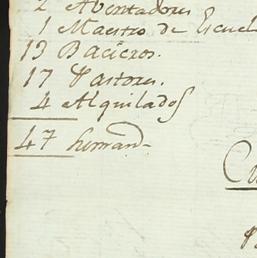 2 Aventadores
1 Maestro de Escuel
13 Bacieros.
17 Pastores.
4 Alquilados
47 herman